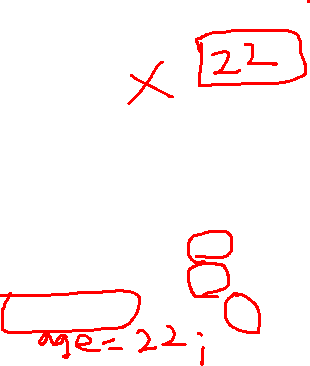 X 22
age=22;